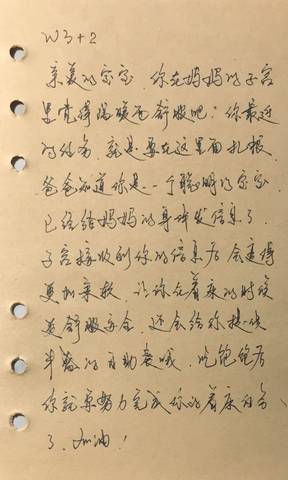 W3+2
亲爱的宝宝，你在妈妈的子宫
里觉得温暖而舒服吧？你最近
的任务，就是要在这里面扎根。
爸爸知道你是一个聪明的宝宝，
已经给妈妈的身体发信息了。
子宫接收到你的信息后，会变得
更加柔软，让你在着床的时候
更舒服安全，还会给你提供
丰富的自助餐哦，吃饱饱后
你就要努力完成你的着床任务
了，加油！